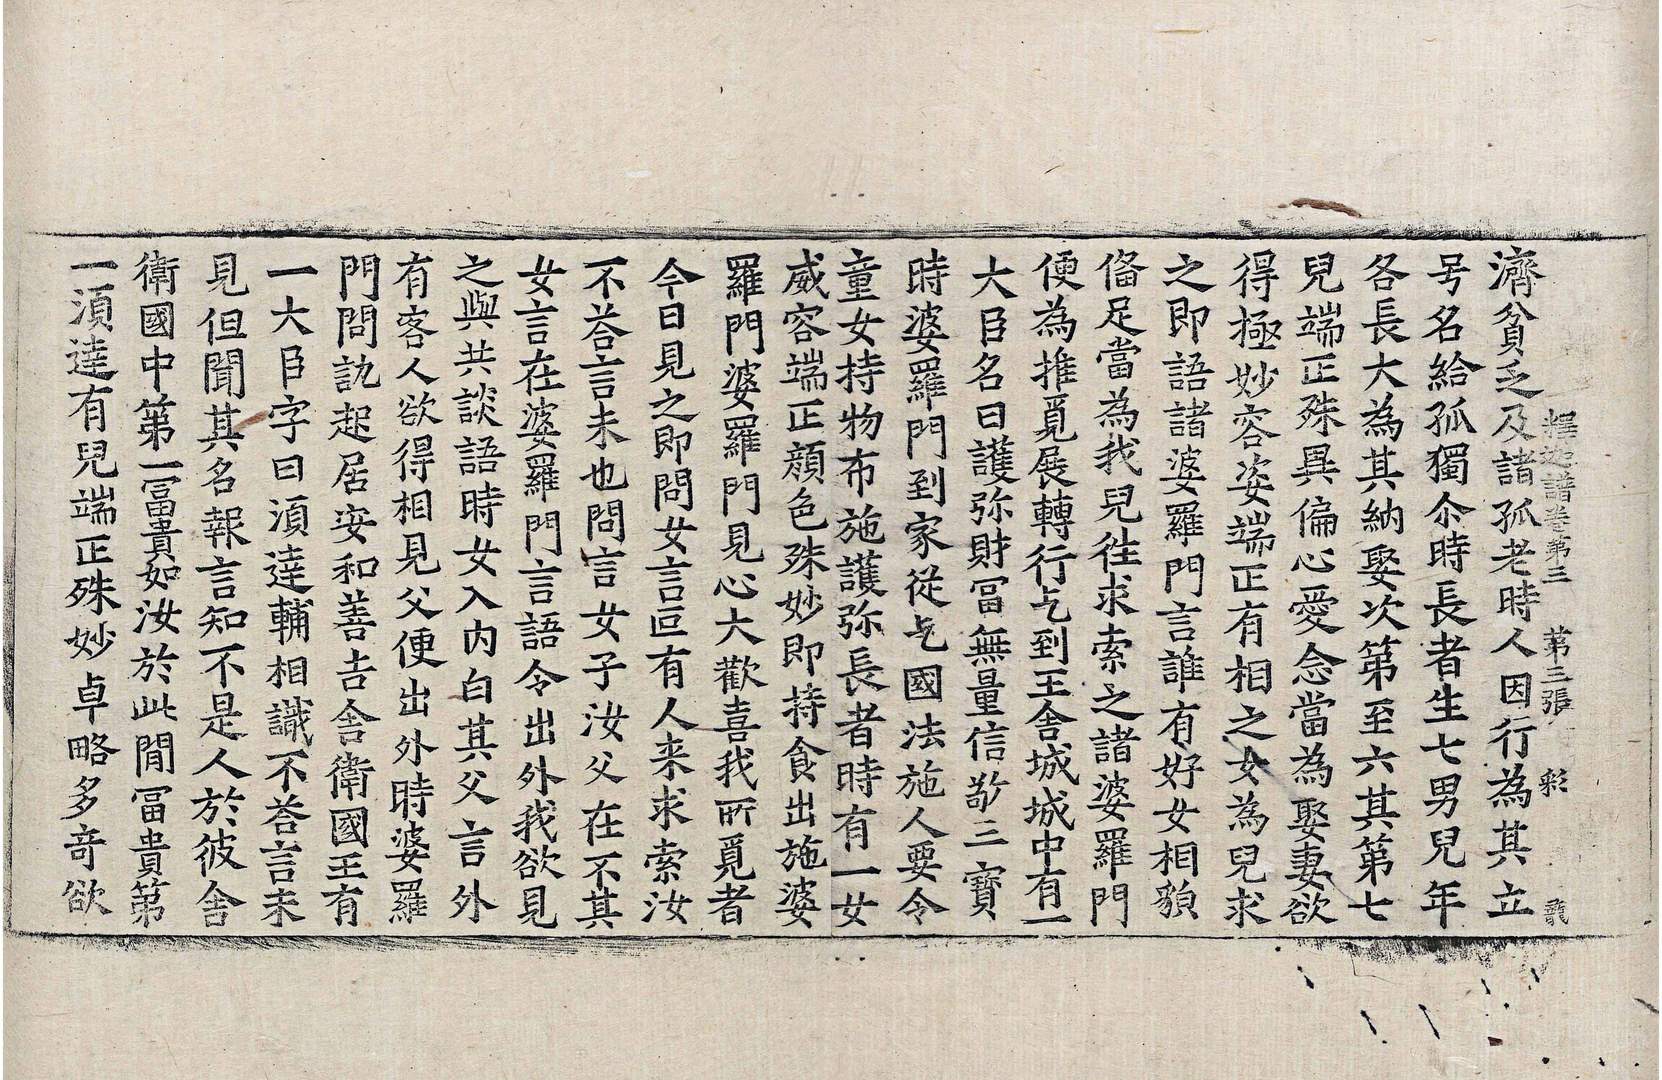 釋迦譜卷第三 第三張 彩 龍
濟貧乏及諸孤老時人因行為其立
号名給孤獨尒時長者生七男兒年
各長大為其納娶次第至六其第七
兒端正殊異偏心愛念當為娶妻欲
得極妙容姿端正有相之女為兒求
之即語諸婆羅門言誰有好女相貌
俻足當為我兒往求索之諸婆羅門
便為推覓展轉行乞到王舍城城中有一
大臣名曰護弥財冨無量信敬三寶
時婆羅門到家從乞國法施人要令
童女持物布施護弥長者時有一女
威容端正顔色殊妙即持食出施婆
羅門婆羅門見心大歡喜我所覓者
今日見之即問女言叵有人来求索汝
不荅言未也問言女子汝父在不其
女言在婆羅門言語令出外我欲見
之與共談語時女入内白其父言外
有客人欲得相見父便出外時婆羅
門問訊起居安和善吉舍衛國王有
一大臣字曰湏達輔相識不荅言未
見但聞其名報言知不是人於彼舍
衛國中第一冨貴如汝於此閒冨貴第
一湏達有兒端正殊妙卓略多竒欲